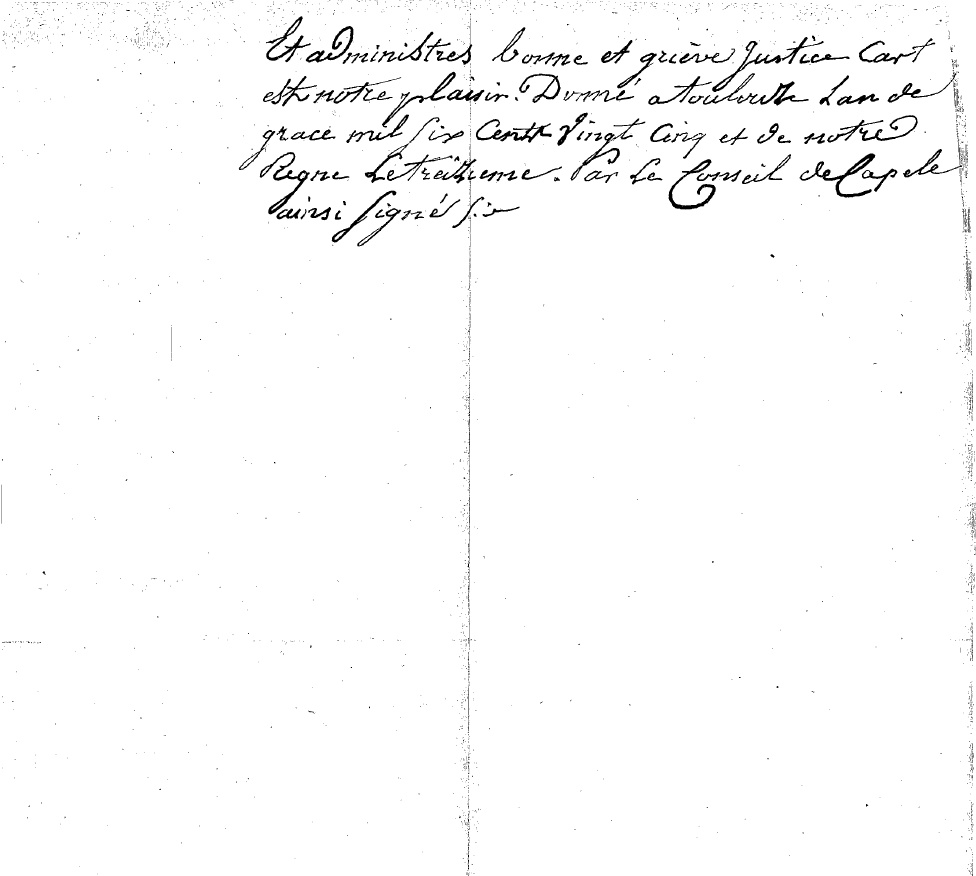 Et administres bonne et griève Justice Cart
est notre plaisir. Donné a toulouze Lan de
grace mil Six Cents Vingt Cinq et de notre
Regne Le treizieme. Par Le Conseil de Capele
ainsi Signé